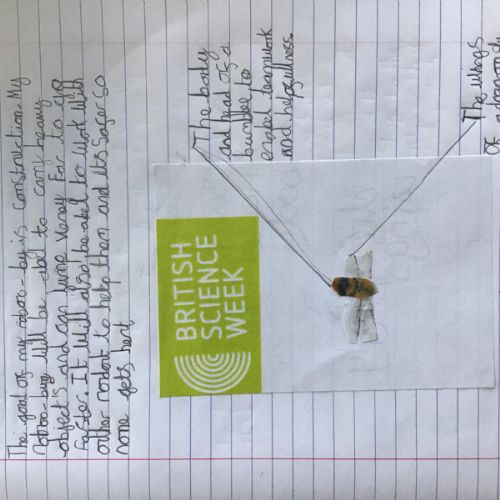 The goal of my robo-bug is construction. My
robo-bug will be abel to carry heavy
objects and can jump verey far to go
faster. It will also be abel to work with
other robots to help them and its safer so
none gets hert
The body
and head of a
bumble to
enabel teamwork
and helpfullness
The wings
of a
BRITISH
SCIENCE
WEEK